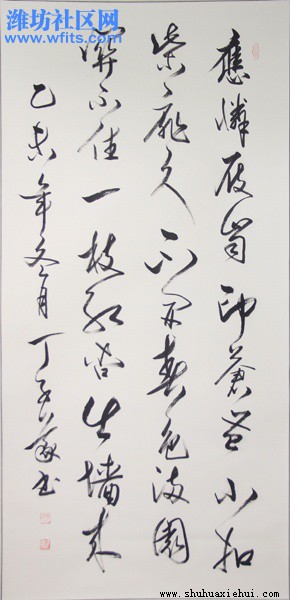 潍坊社区网
www.wfits.com
應憐屐齒印蒼苔小扣
柴扉久不開春色滿園
關不住一枝紅杏出墻來
乙未年冬月丁子書
www.shuhuaxiehui.com